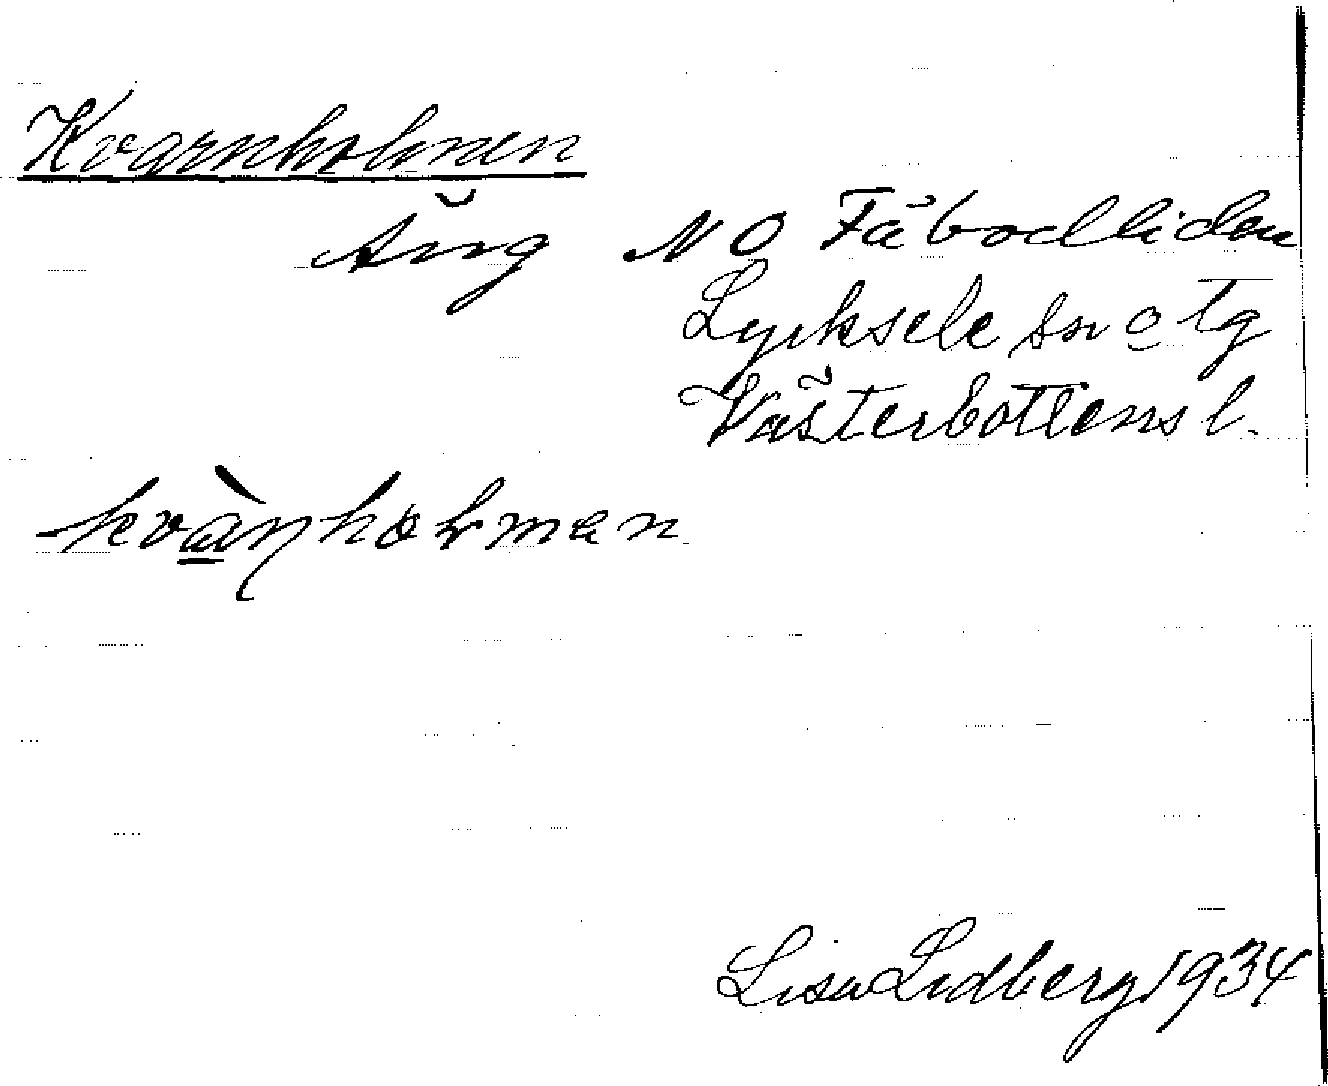 Kvarnholmen
Äng NO Fäbodliden
Lycksele sn o tg
Västerbottens l.
kvànholmen
Lisa Lidberg 1934